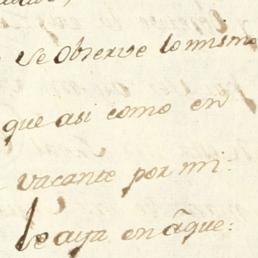 se Observe lo mismo
que asi como en
vacante por mi
se aya en aq̃ue: